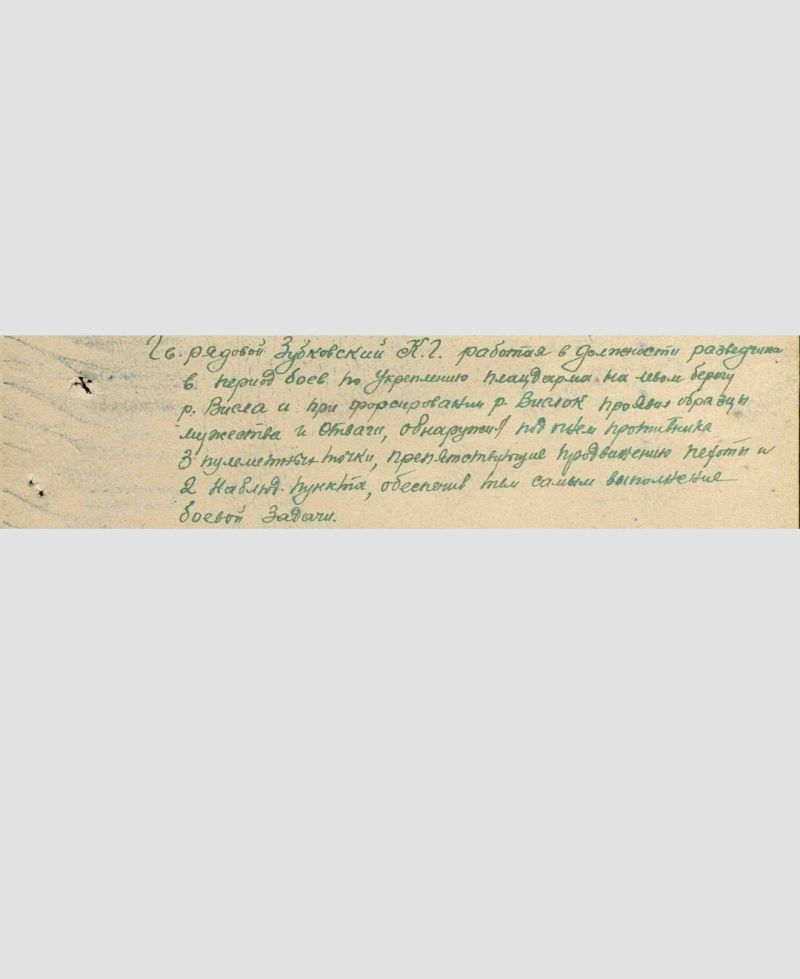 Гв. рядовой Зубковский К.Г. работая в должности разведчика
в период боев по укреплению плацдарма на левом берегу
р. Висла и при форсировании р. Вислок проявил образцы
мужества и отваги, обнаружил под огнем противника
3 пулеметных точки, препятствующие продвижению пехоты и
2 наблюд. пункта, обеспечив тем самым выполнение
боевой задачи.